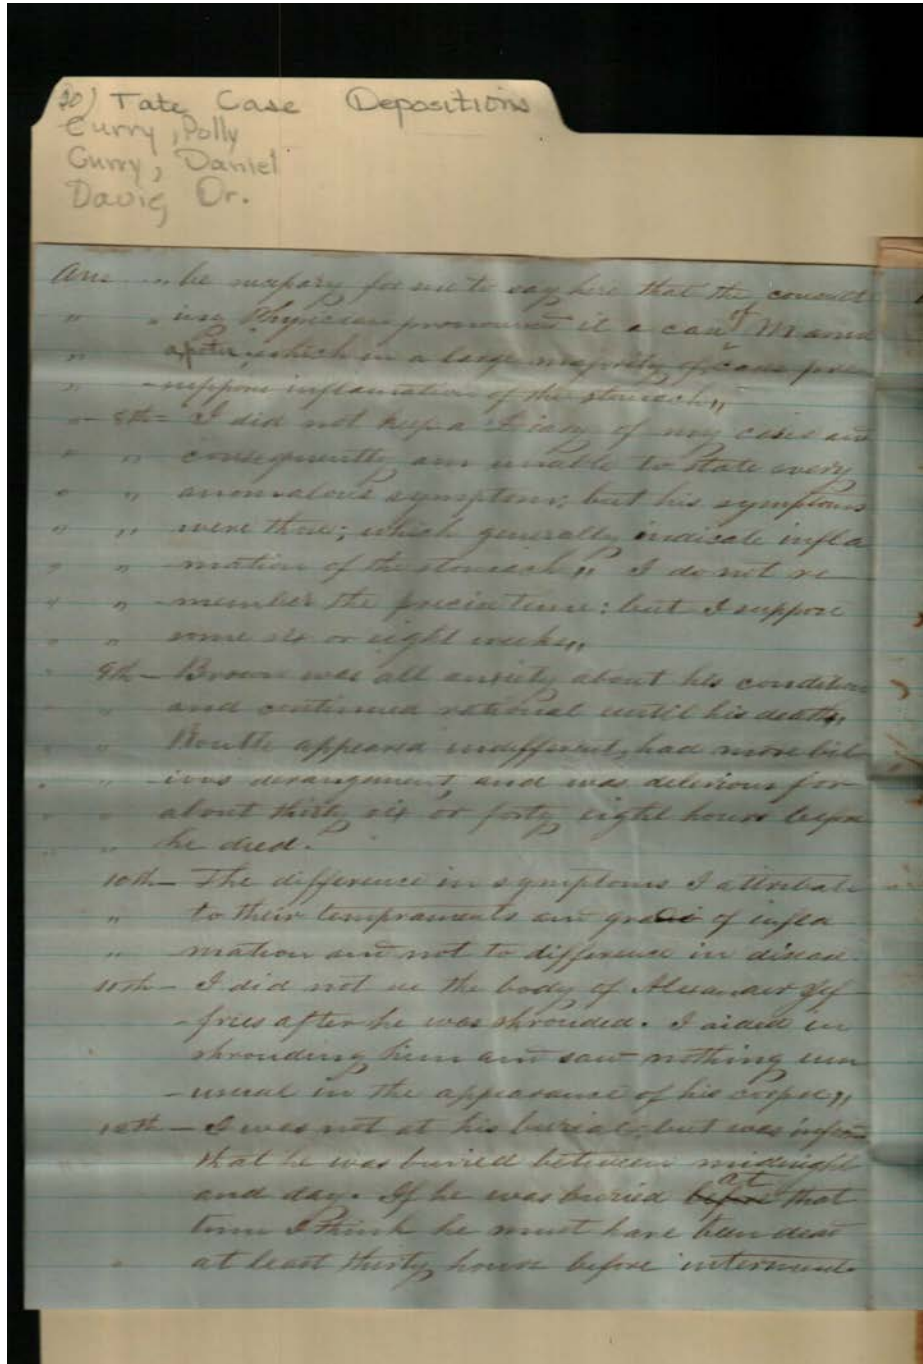 20) Tate Case Depositions
Curry, Polly
Curry, Daniel
Davis, Dr.
Ans " be nessary for me to say here that the consult
" " ing Physician pronounced it a case of Mania
" apotu, which in a large majority of cases pre
" - suppose inflamation of the stomach,,
" - 8th - I did not keep a Diary of my cases and
" " consequently am unable to state every
" " anomalous symptom; but his symptoms
" " were those; which generally indicate infla
" " - mation of the stomach,, I do not re
" " - member the precise time: but I suppose
" " some six or eight weeks,,
" 9th - Brown was all anxiety about his condition
" and continued rational until his death,,
" " Routh appeared indifferent, had more bil
" " - ious derangement, and was delirious for
" " about thirty six or forty eight hours before
" " he died.
10th - The difference in symptoms I attribute
" to their tempraments and grade of infla
" - mation and not to difference in disease.
11th - I did not see the body of Alexander Jef
- fries after he was shrouded. I aided in
shrouding him and saw nothing un
- usual in the appearance of his corpse,,
12th - I was not at his burial; but was informed
that he was buried between midnight
and day. If he was buried before at that
time I think he must have been dead
" at least thirty hours before interment.